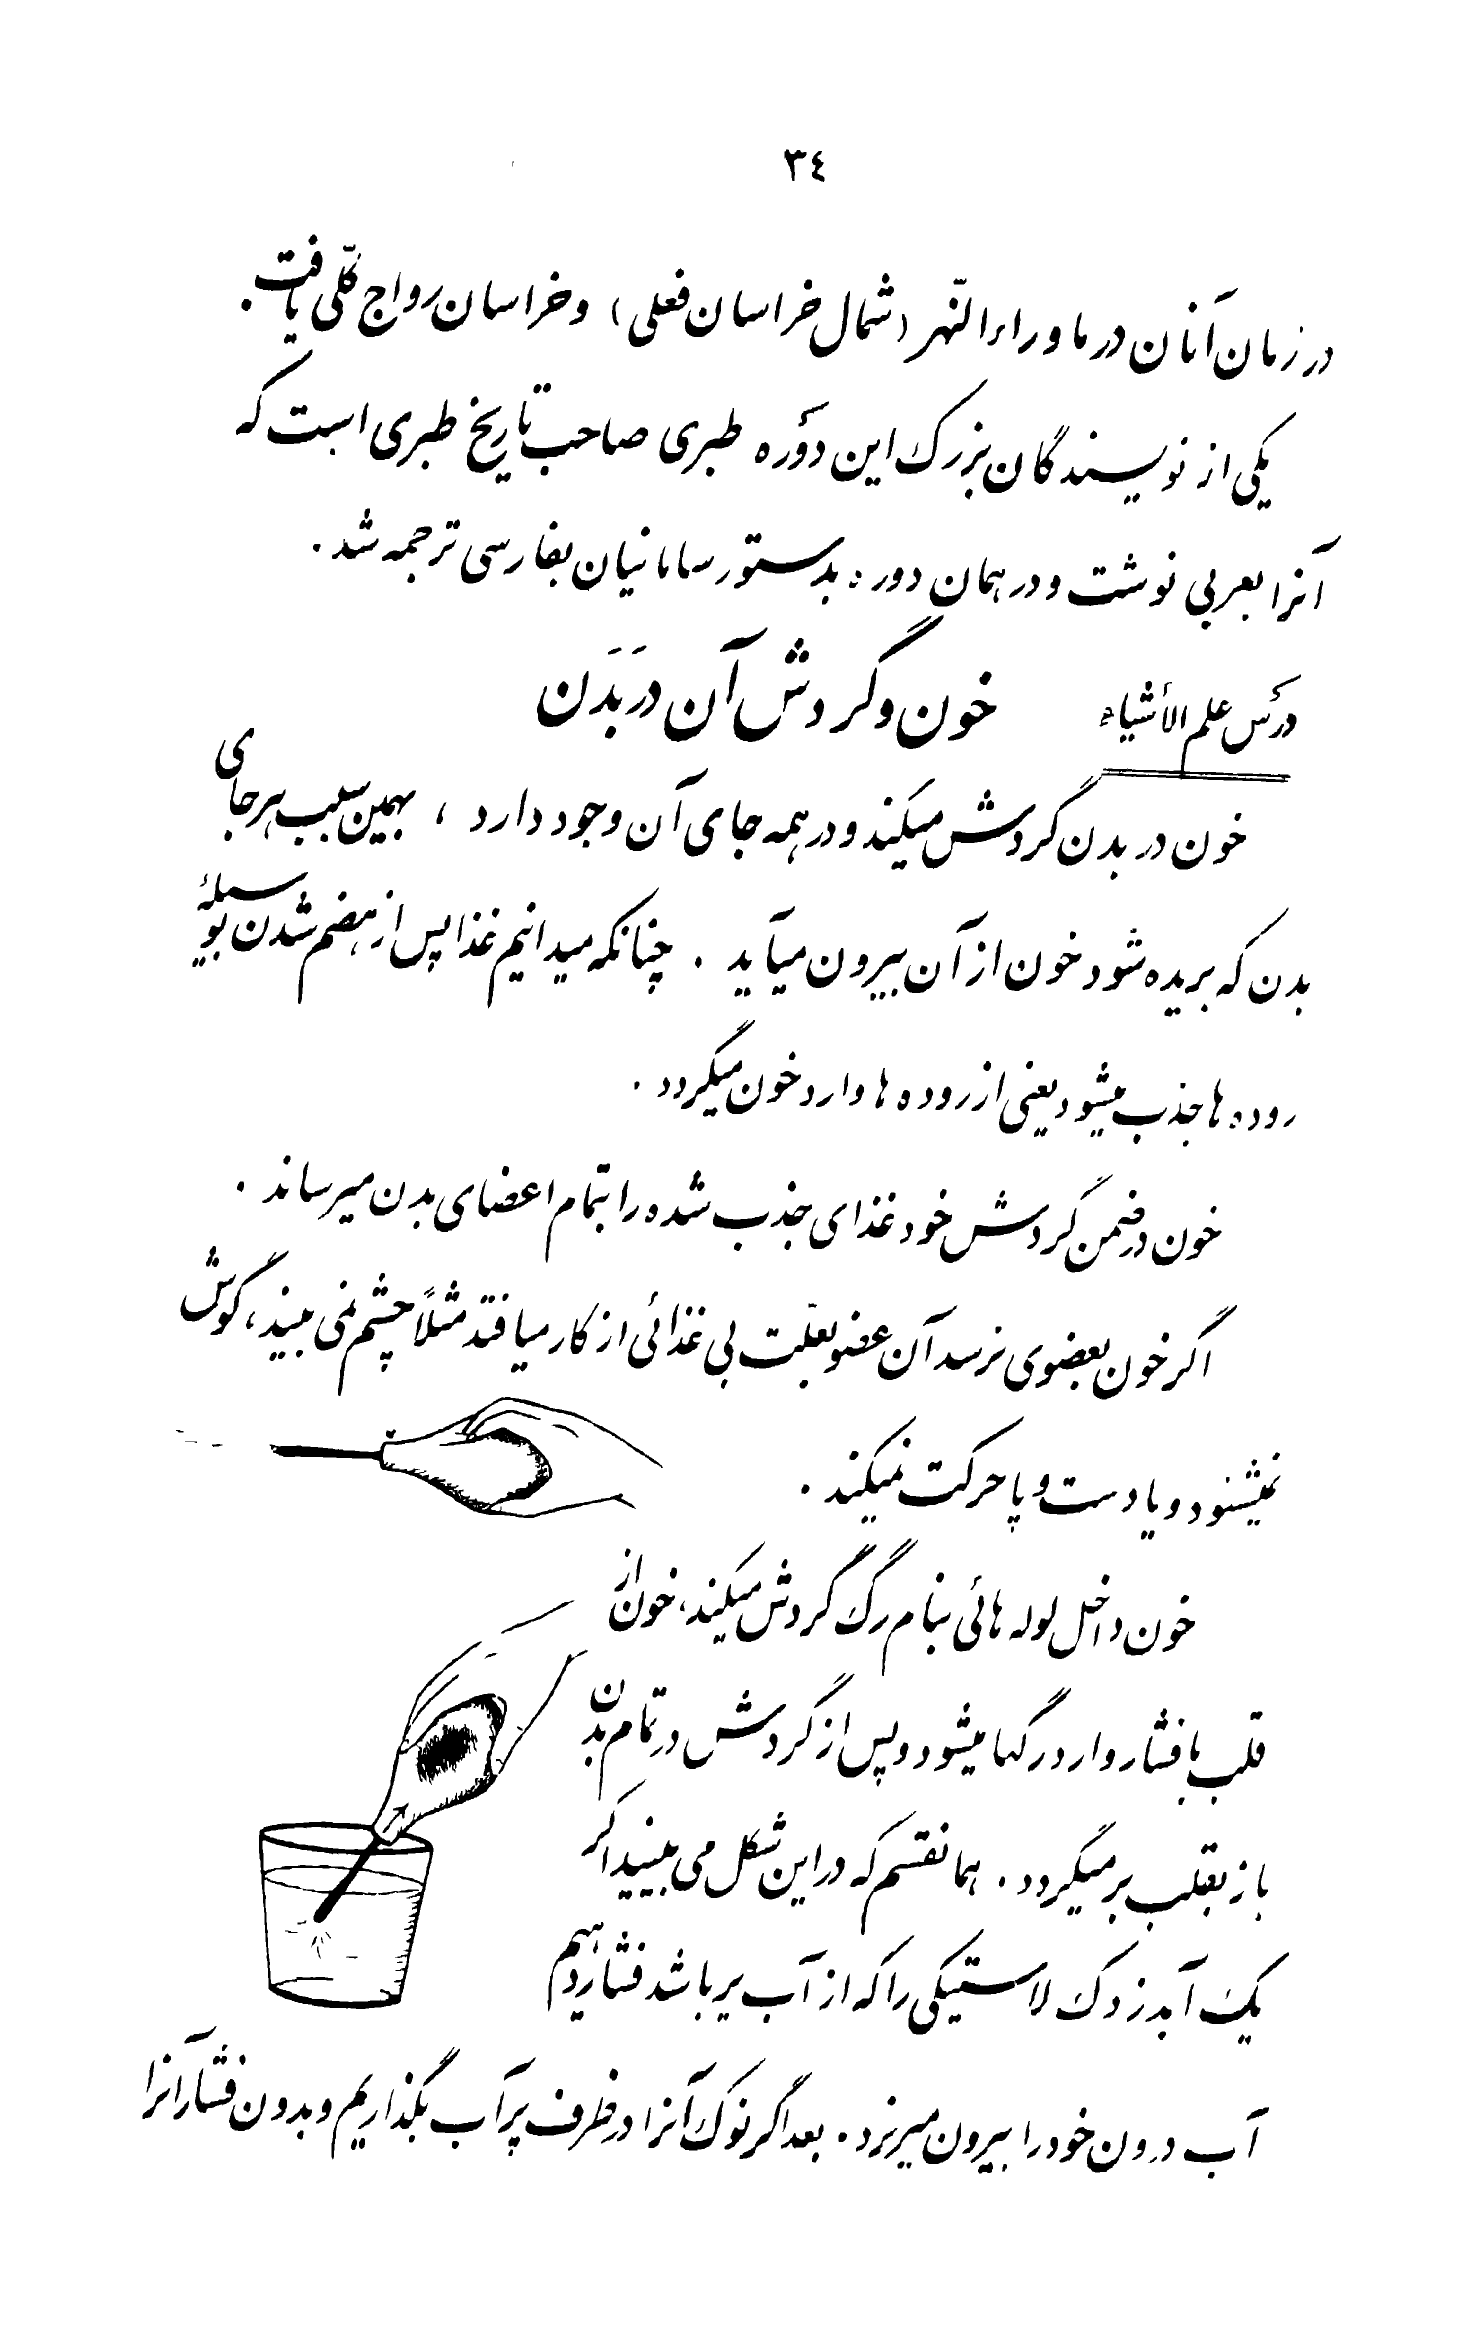 ٣٤
در زمان آنان در ماوراءالنّهر (شمال خراسان فعلی) و خراسان رواج کلّی یافت.
یکی از نویسندگان بزرگ این دوره طبری صاحب تاریخ طبری است که
آنرا بعربی نوشت و در همان دوره بدستور سامانیان بفارسی ترجمه شد.
درس علم الأشیاء خون و گردش آن در بَدَن
خون در بدن گردش میکند و در همه جای آن وجود دارد ، بهمین سبب هر جای
بدن که بریده شود خون از آن بیرون میآید . چنانکه میدانیم غذا پس از هضم شدن بوسیلهٔ
روده ها جذب میشود یعنی از روده ها وارد خون میگردد .
خون در ضمن گردش خود غذای جذب شده را بتمام اعضای بدن میرساند .
اگر خون بعضوی نرسد آن عضو بعلّت بی غذائی از کار میافتد مثلاً چشم نمی بیند، گوش
نمیشنود و یا دست و پا حرکت نمیکند .
خون داخل لوله هائی بنام رگ گردش میکند، خون از
قلب با فشار وارد رگها میشود و پس از گردش در تمام بدن
باز بقلب بر میگردد . همانقسم که در این شکل می بینید اگر
یک آبدزدک لاستیکی را که از آب پر باشد فشار دهیم
آب درون خود را بیرون میریزد . بعد اگر نوک آنرا در ظرف پر آب بگذاریم و بدون فشار آنرا